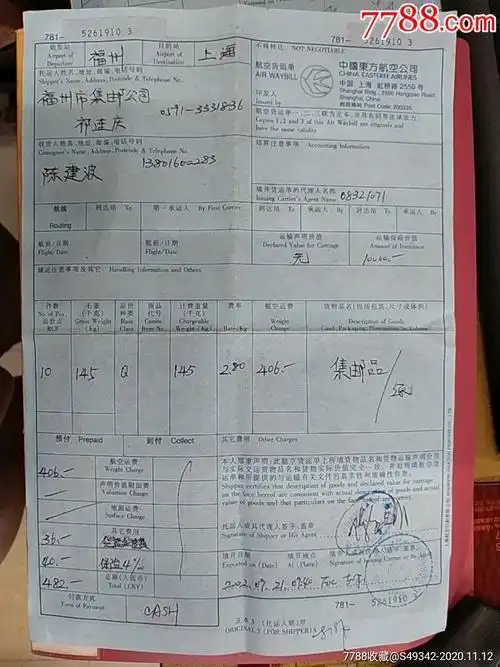 7788.com
781- 5261910 3
781- 5261910 3
始发站
Airport of
Departure
福州
目的站
Airport of
Destination
上海
不得转让 NOT NEGOTIABLE
航空货运单
AIR WAYBILL
印发人
Issued by
中國東方航空公司
CHINA EASTERN AIRLINES
中国 上海 虹桥路 2550 号
Shanghai, China
托运人姓名、地址、邮编、电话号码
Shipper's Name, Address, Postcode & Telephone No.
福州市集邮公司
0591-3331836
祁连庆
航空货运单一、二、三联为正本，并具有同等法律效力。
Copies 1, 2 and 3 of this Air Waybill are originals and
have the same validity
收货人姓名、地址、邮编、电话号码
Consignee's Name, Address, Postcode & Telephone No.
13801600283
陈建波
结算注意事项 Accounting Information
填开货运单的代理人名称
Issuing Carrier's Agent Name
08321071
航线
Routing
到达站 To
第一承运人 By First Carrier
到达站 To
承运人 By
到达站 To
承运人 By
航班/日期
Flight/Date
航班/日期
Flight/Date
运输声明价值
Declared Value for Carriage
无
运输保险价值
Amount of Insurance
10000.-
储运注意事项及其它 Handling Information and Others
件数
No. of Pcs.
运价点
RCP
毛重
(千克)
Gross Weight
(Kg)
运价
种类
Rate
Class
商品
代号
Comm.
Item No.
计费重量
(千克)
Chargeable
Weight
(Kg)
费率
Rate/Kg
航空运费
Weight
Charge
货物品名(包括包装、尺寸或体积)
Description of Goods
(Incl. Packaging, Dimensions or Volume)
10 145 Q 145 2.80 406.- 集邮品
预付 Prepaid
到付 Collect
其它费用 Other Charges
406.-
航空运费
Weight Charge
声明价值附加费
Valuation Charge
地面运费
Surface Charge
36.-
其它费用
40.-
保险 4‰
482.-
总额(人民币)
Total (CNY)
付款方式
Form of Payment
CASH
本人郑重声明：此航空货运单上所填货物品名和货物运输声明价值
与实际交运货物品名和货物实际价值完全一致，并对所填航空
货运单和所提供的与运输有关文件的真实性和准确性负责。
Shipper certifies that description of goods and declared value for carriage
on the face hereof are consistent with actual description of goods and actual
value of goods and that particulars on the face hereof are correct.
托运人或其代理人签字、盖章
Signature of Shipper or His Agent
填开日期
Executed on (Date)
填开地点
At (Place)
填开人或其代理人签字、盖章
Signature of Issuing Carrier or Its Agent
正本 3 (托运人联) 甲
ORIGINAL 3 (FOR SHIPPER) A
781- 5261910 3
7788收藏@S49342-2020.11.12